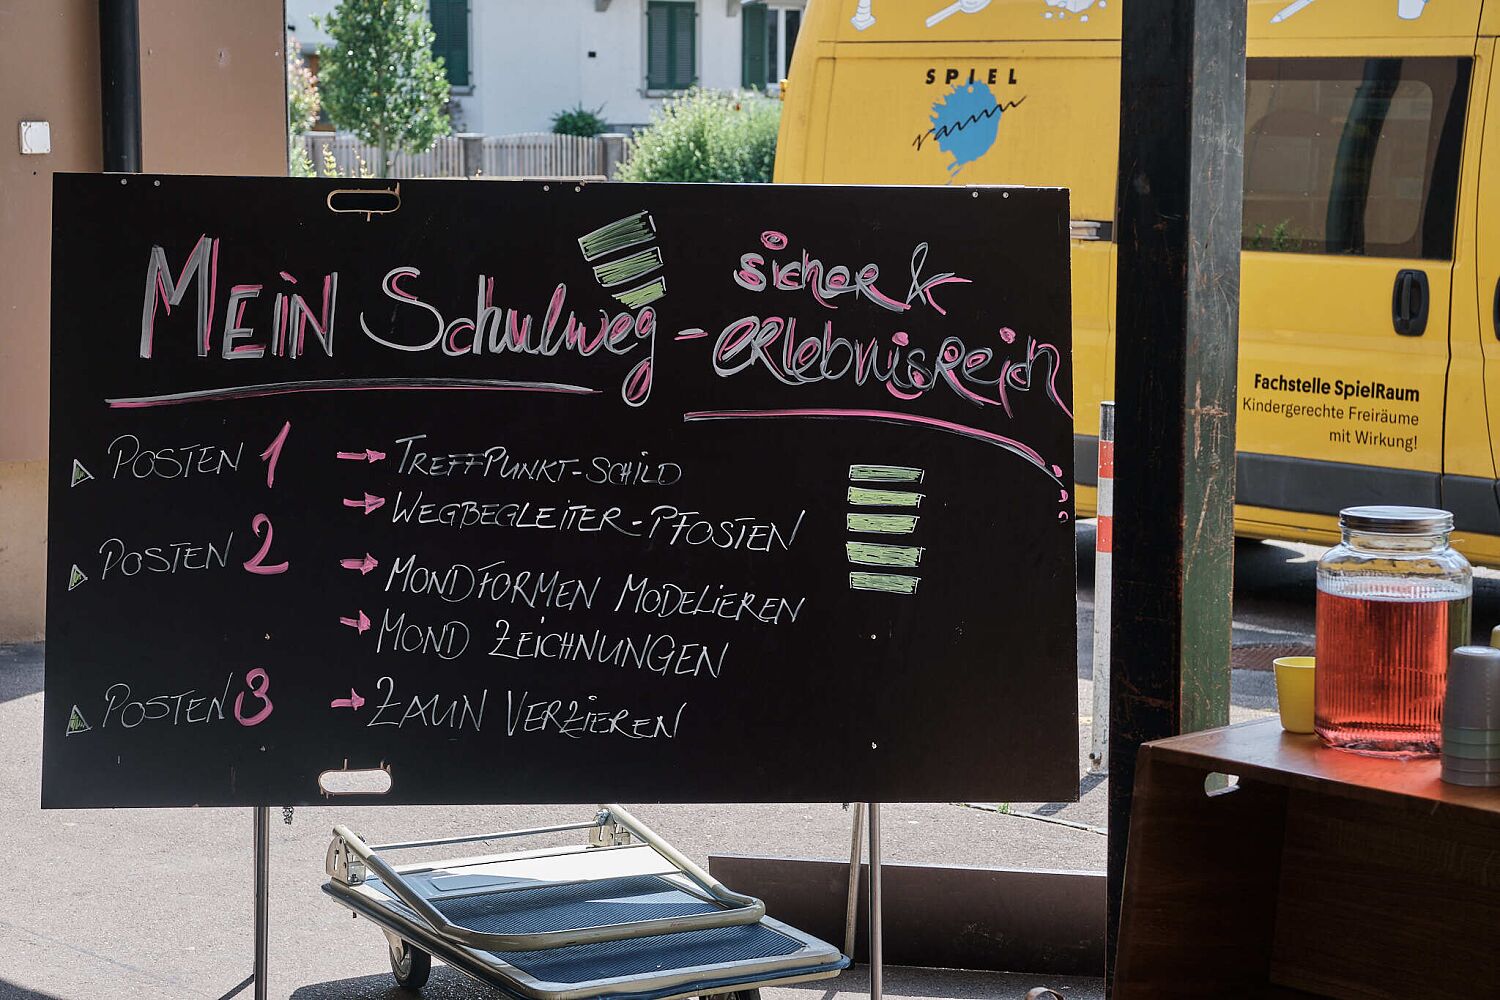 SPIEL
raum
MEiN Schulweg - sicher &
erlebnisreich
POSTEN 1 → TREFFPUNKT-SCHILD
→ WEGBEGLEITER-PFOSTEN
POSTEN 2 → MONDFORMEN MODELIEREN
→ MOND ZEICHNUNGEN
POSTEN 3 → ZAUN VERZIEREN
Fachstelle SpielRaum
Kindergerechte Freiräume
mit Wirkung!